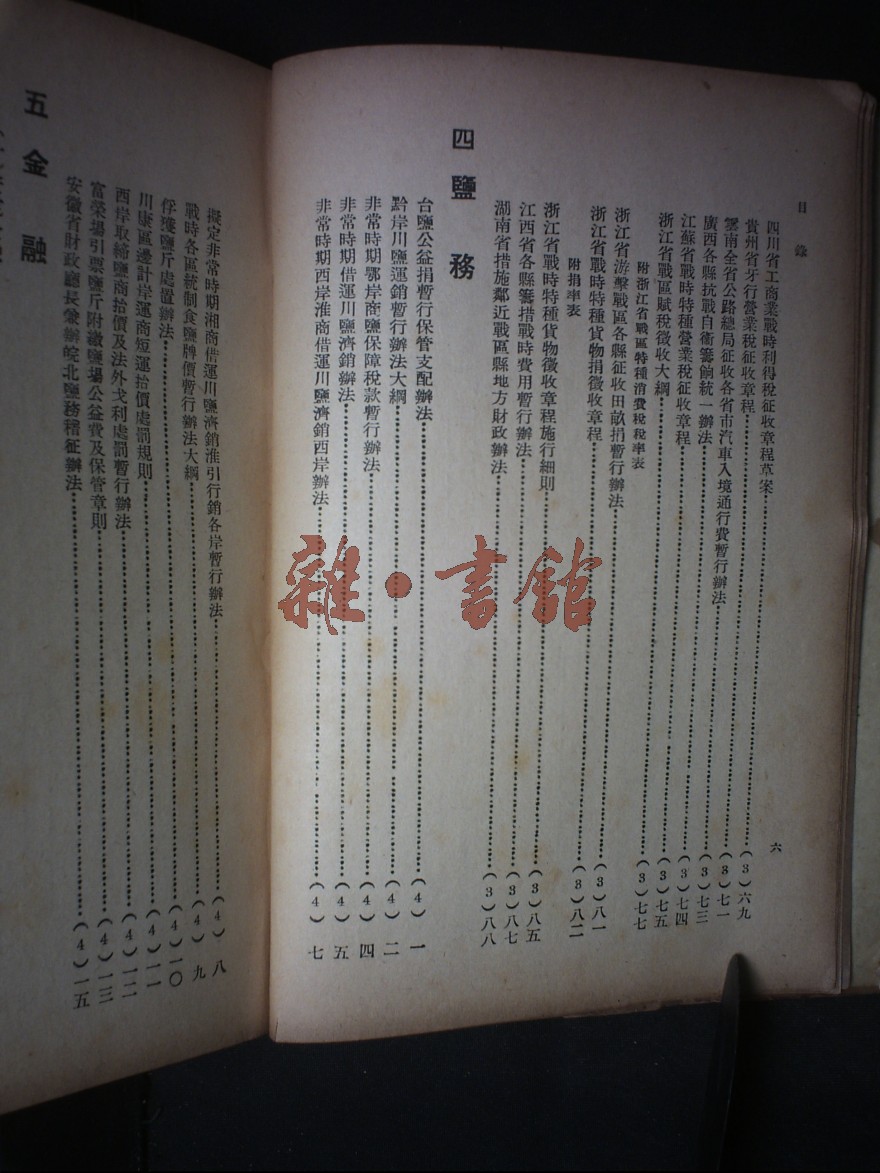 目錄
六
四川省工商業戰時利得稅征收章程草案
貴州省牙行營業稅征收章程……(3)六九
雲南全省公路總局征收各省市汽車入境通行費暫行辦法……(3)七一
廣西各縣抗戰自衛籌餉統一辦法……(3)七三
江蘇省戰時特種營業稅征收章程……(3)七四
浙江省戰區賦稅徵收大綱……(3)七五
附浙江省戰區特種消費稅稅率表……(3)七七
浙江省游擊戰區各縣征收田畝捐暫行辦法
浙江省戰時特種貨物捐徵收章程……(3)八一
附捐率表……(3)八二
浙江省戰時特種貨物徵收章程施行細則……(3)八五
江西省各縣籌措戰時費用暫行辦法……(3)八七
湖南省措施鄰近戰區縣地方財政辦法……(3)八八
四鹽務
台鹽公益捐暫行保管支配辦法……(4)一
黔岸川鹽運銷暫行辦法大綱……(4)二
非常時期鄂岸商鹽保障稅款暫行辦法……(4)四
非常時期借運川鹽濟銷辦法……(4)五
非常時期西岸淮商借運川鹽濟銷西岸辦法……(4)七
擬定非常時期湘商借運川鹽濟銷淮引行銷各岸暫行辦法……(4)八
戰時各區統制食鹽牌價暫行辦法大綱……(4)九
俘獲鹽斤處置辦法……(4)一〇
川康區邊計岸運商短運抬價處罰規則……(4)一一
西岸取締鹽商抬價及法外弋利處罰暫行辦法……(4)一二
富榮場引票鹽斤附繳鹽場公益費及保管章則……(4)一三
安徽省財政廳長兼辦皖北鹽務稽征辦法……(4)一五
五金融
雜·書館